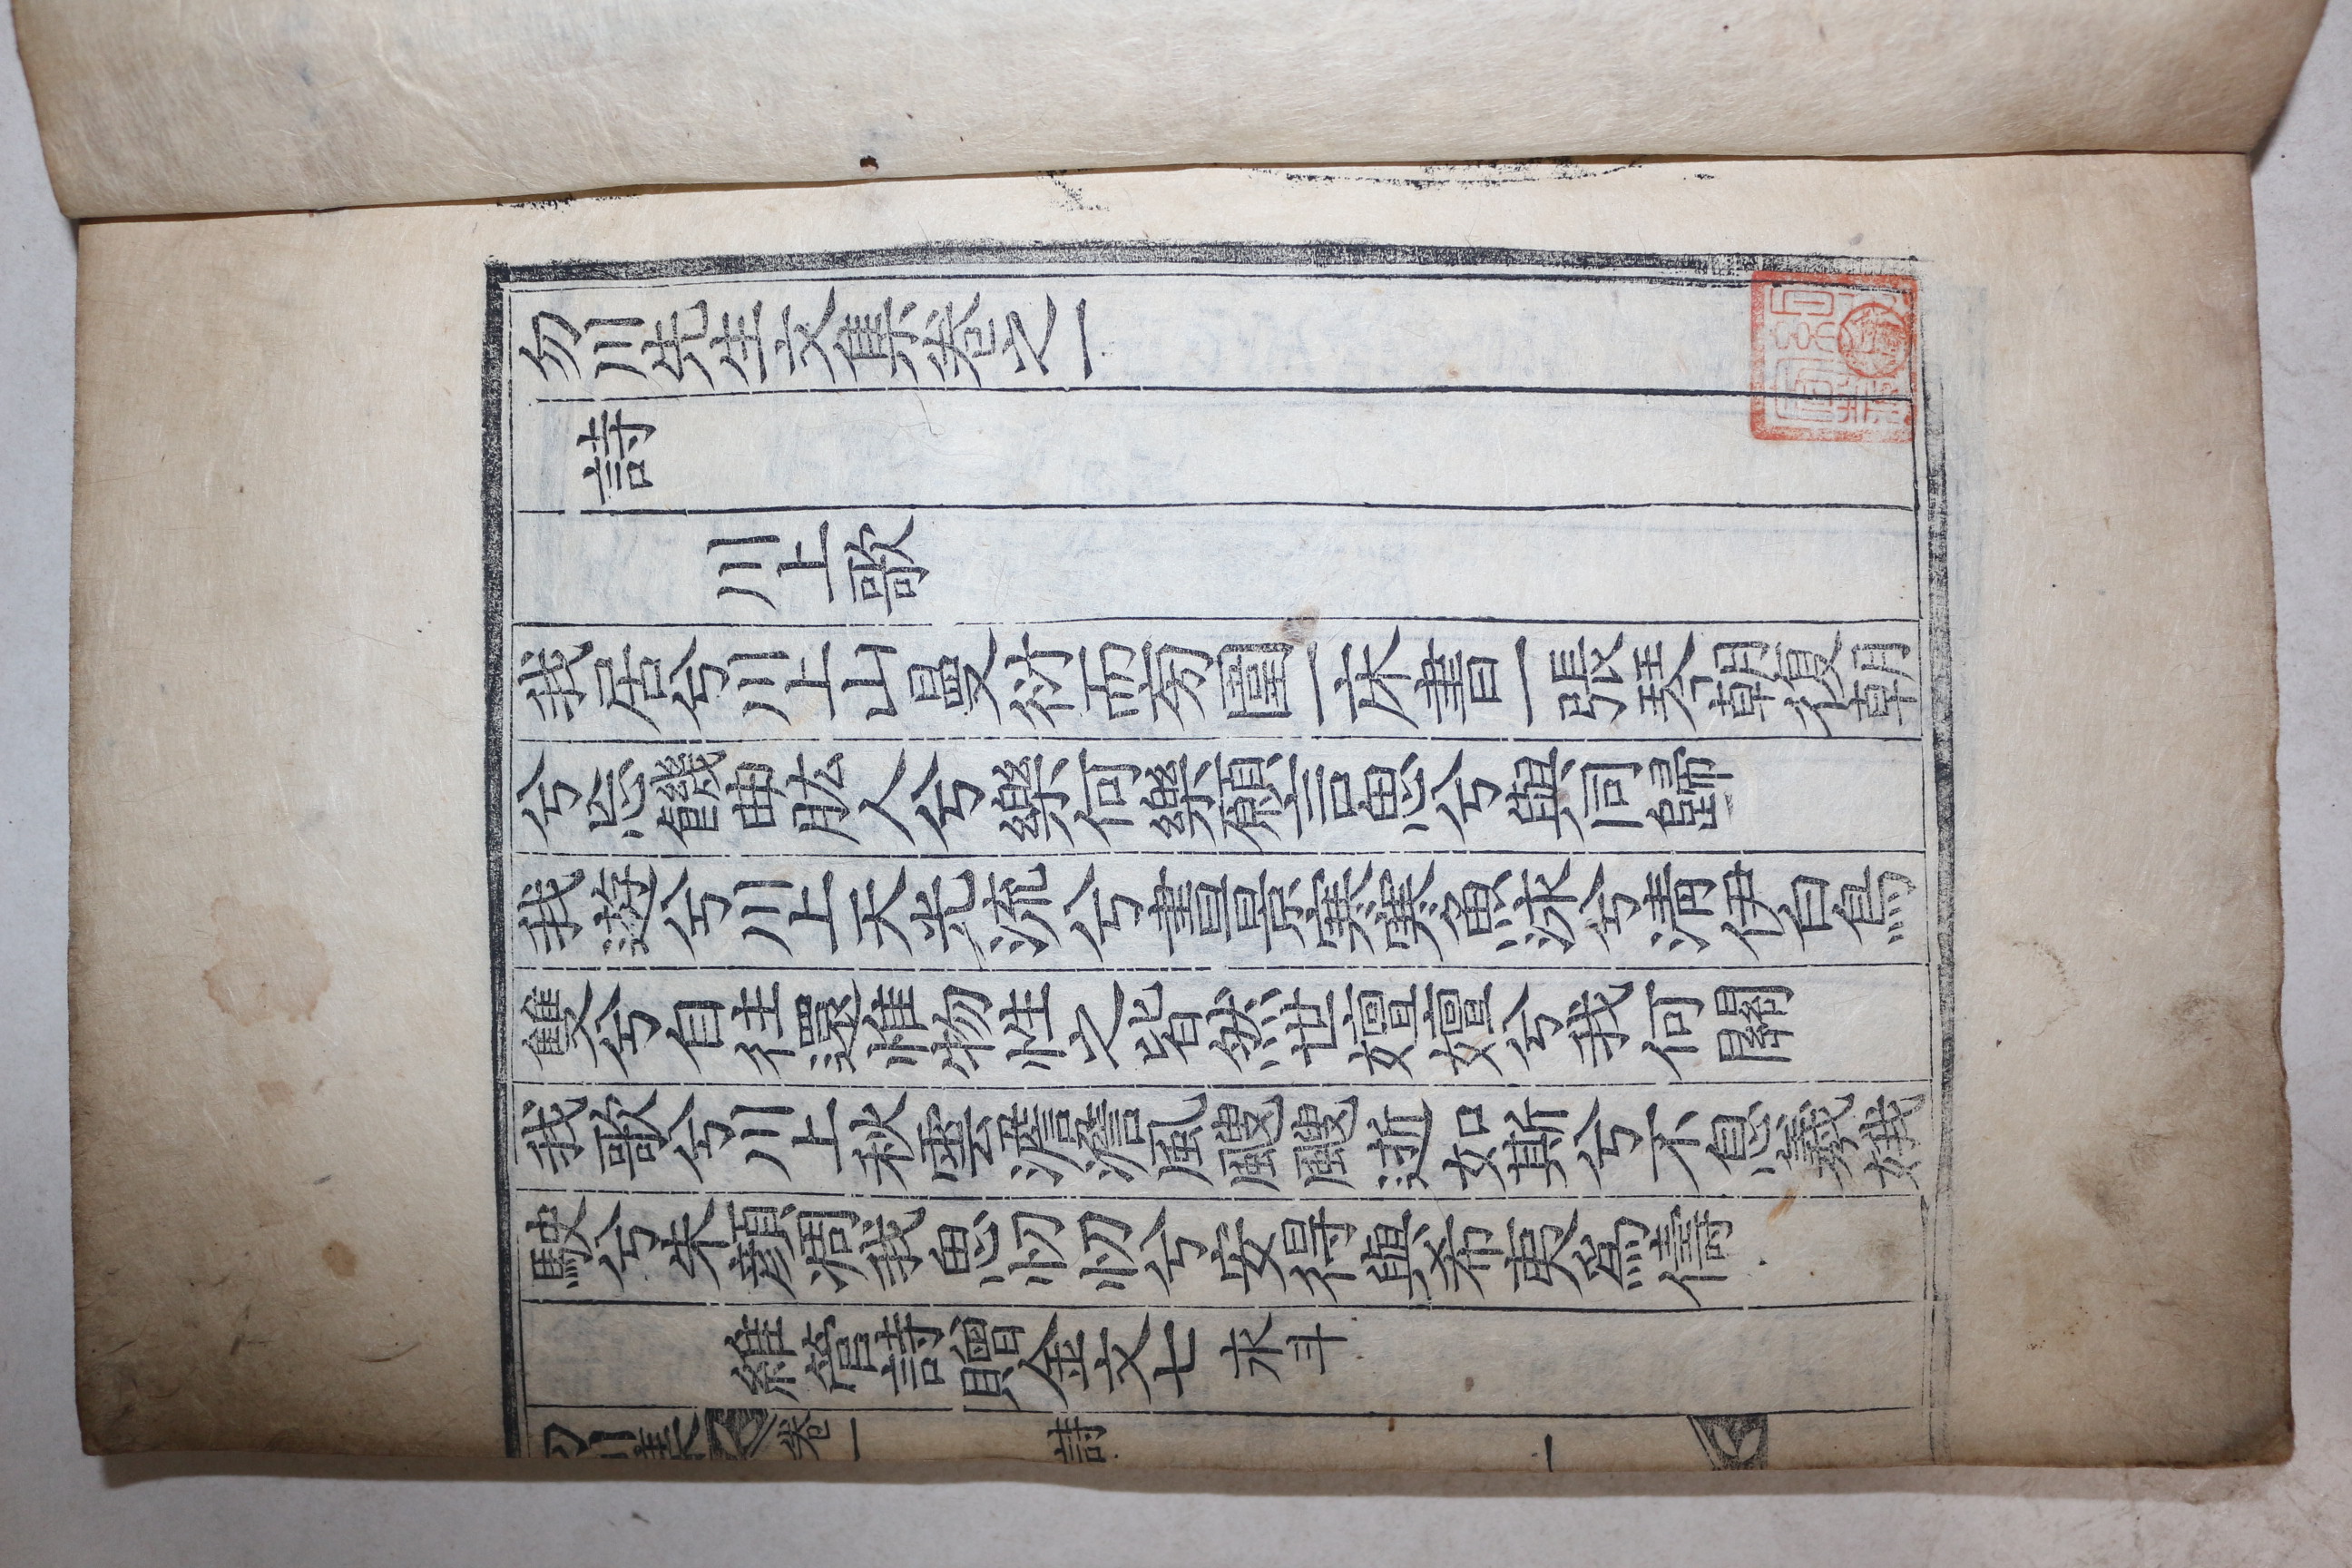 勿川先生文集卷之一
詩
川上歌
我居兮川上山曼衍而旁圍一床書一張琴朝復朝
兮忘饑曲肱人兮樂何樂願言思兮與同歸
我遊兮川上天光流兮晝景寒嘆魚泳兮清伊白鳥
雙兮自往還惟物性之皆然世嬗嬗兮我何關
我歌兮川上秋雲澹澹風颼颼逝如斯兮不息羲娥
駛兮朱顏凋我思忉忉兮安得與希夷爲儔
維詩贈金文七永斗
勿川集 卷一 詩 一